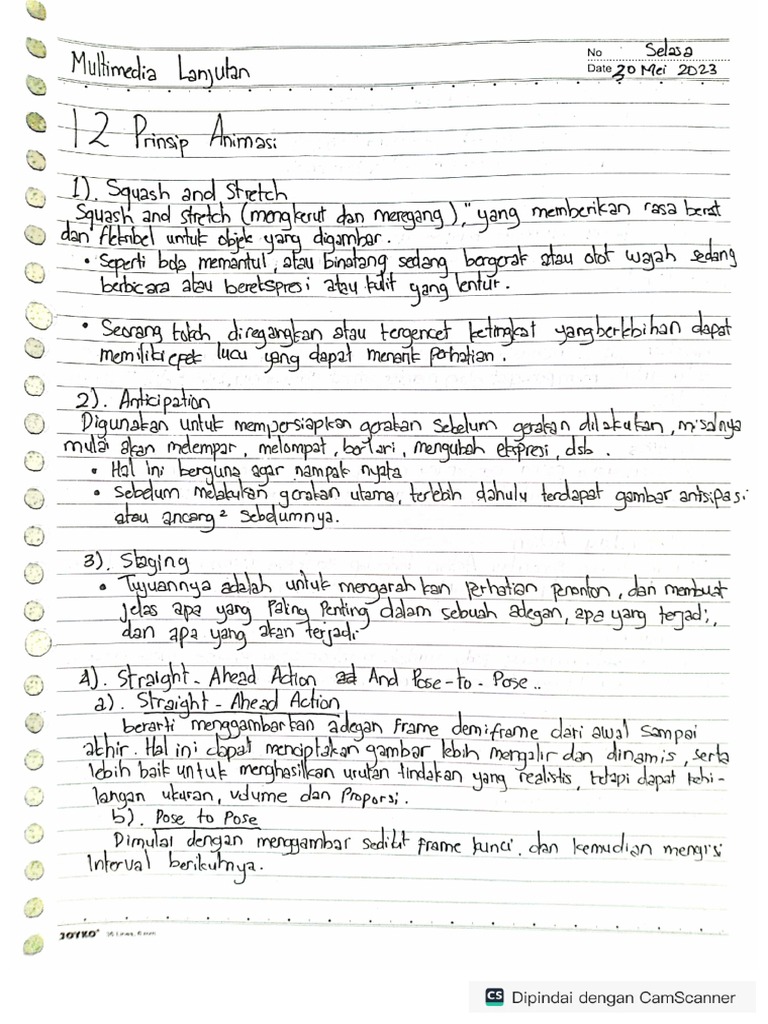 Multimedia Lanjutan
No Selasa
Date 30 Mei 2023
12 Prinsip Animasi
1). Squash and Stretch
Squash and stretch (mengkerut dan meregang)," yang memberikan rasa berat
dan fleksibel untuk objek yang digambar.
• Seperti bola memantul, atau binatang sedang bergerak atau otot wajah sedang
berbicara atau berekspresi atau kulit yang lentur.
• Seorang tokoh diregangkan atau tergencet ketingkat yang berlebihan dapat
memiliki efek lucu yang dapat menarik perhatian.
2). Anticipation
Digunakan untuk mempersiapkan gerakan sebelum gerakan dilakukan, misalnya
mulai akan melempar, melompat, berlari, mengubah ekspresi, dsb.
• Hal ini berguna agar nampak nyata
• Sebelum melakukan gerakan utama, terlebih dahulu terdapat gambar antisipasi
atau ancang² sebelumnya.
3). Staging
• Tujuannya adalah untuk mengarahkan perhatian penonton, dan membuat
jelas apa yang paling penting dalam sebuah adegan, apa yang terjadi,
dan apa yang akan terjadi.
4). Straight-Ahead Action And Pose-to-Pose..
a). Straight-Ahead Action
berarti menggambarkan adegan frame demi frame dari awal sampai
akhir. Hal ini dapat menciptakan gambar lebih mengalir dan dinamis, serta
lebih baik untuk menghasilkan urutan tindakan yang realistis, tetapi dapat kehi-
langan ukuran, volume dan Proporsi.
b). Pose to Pose
Dimulai dengan menggambar sedikit frame kunci, dan kemudian mengisi
Interval berikutnya.
JOYKO
CS Dipindai dengan CamScanner